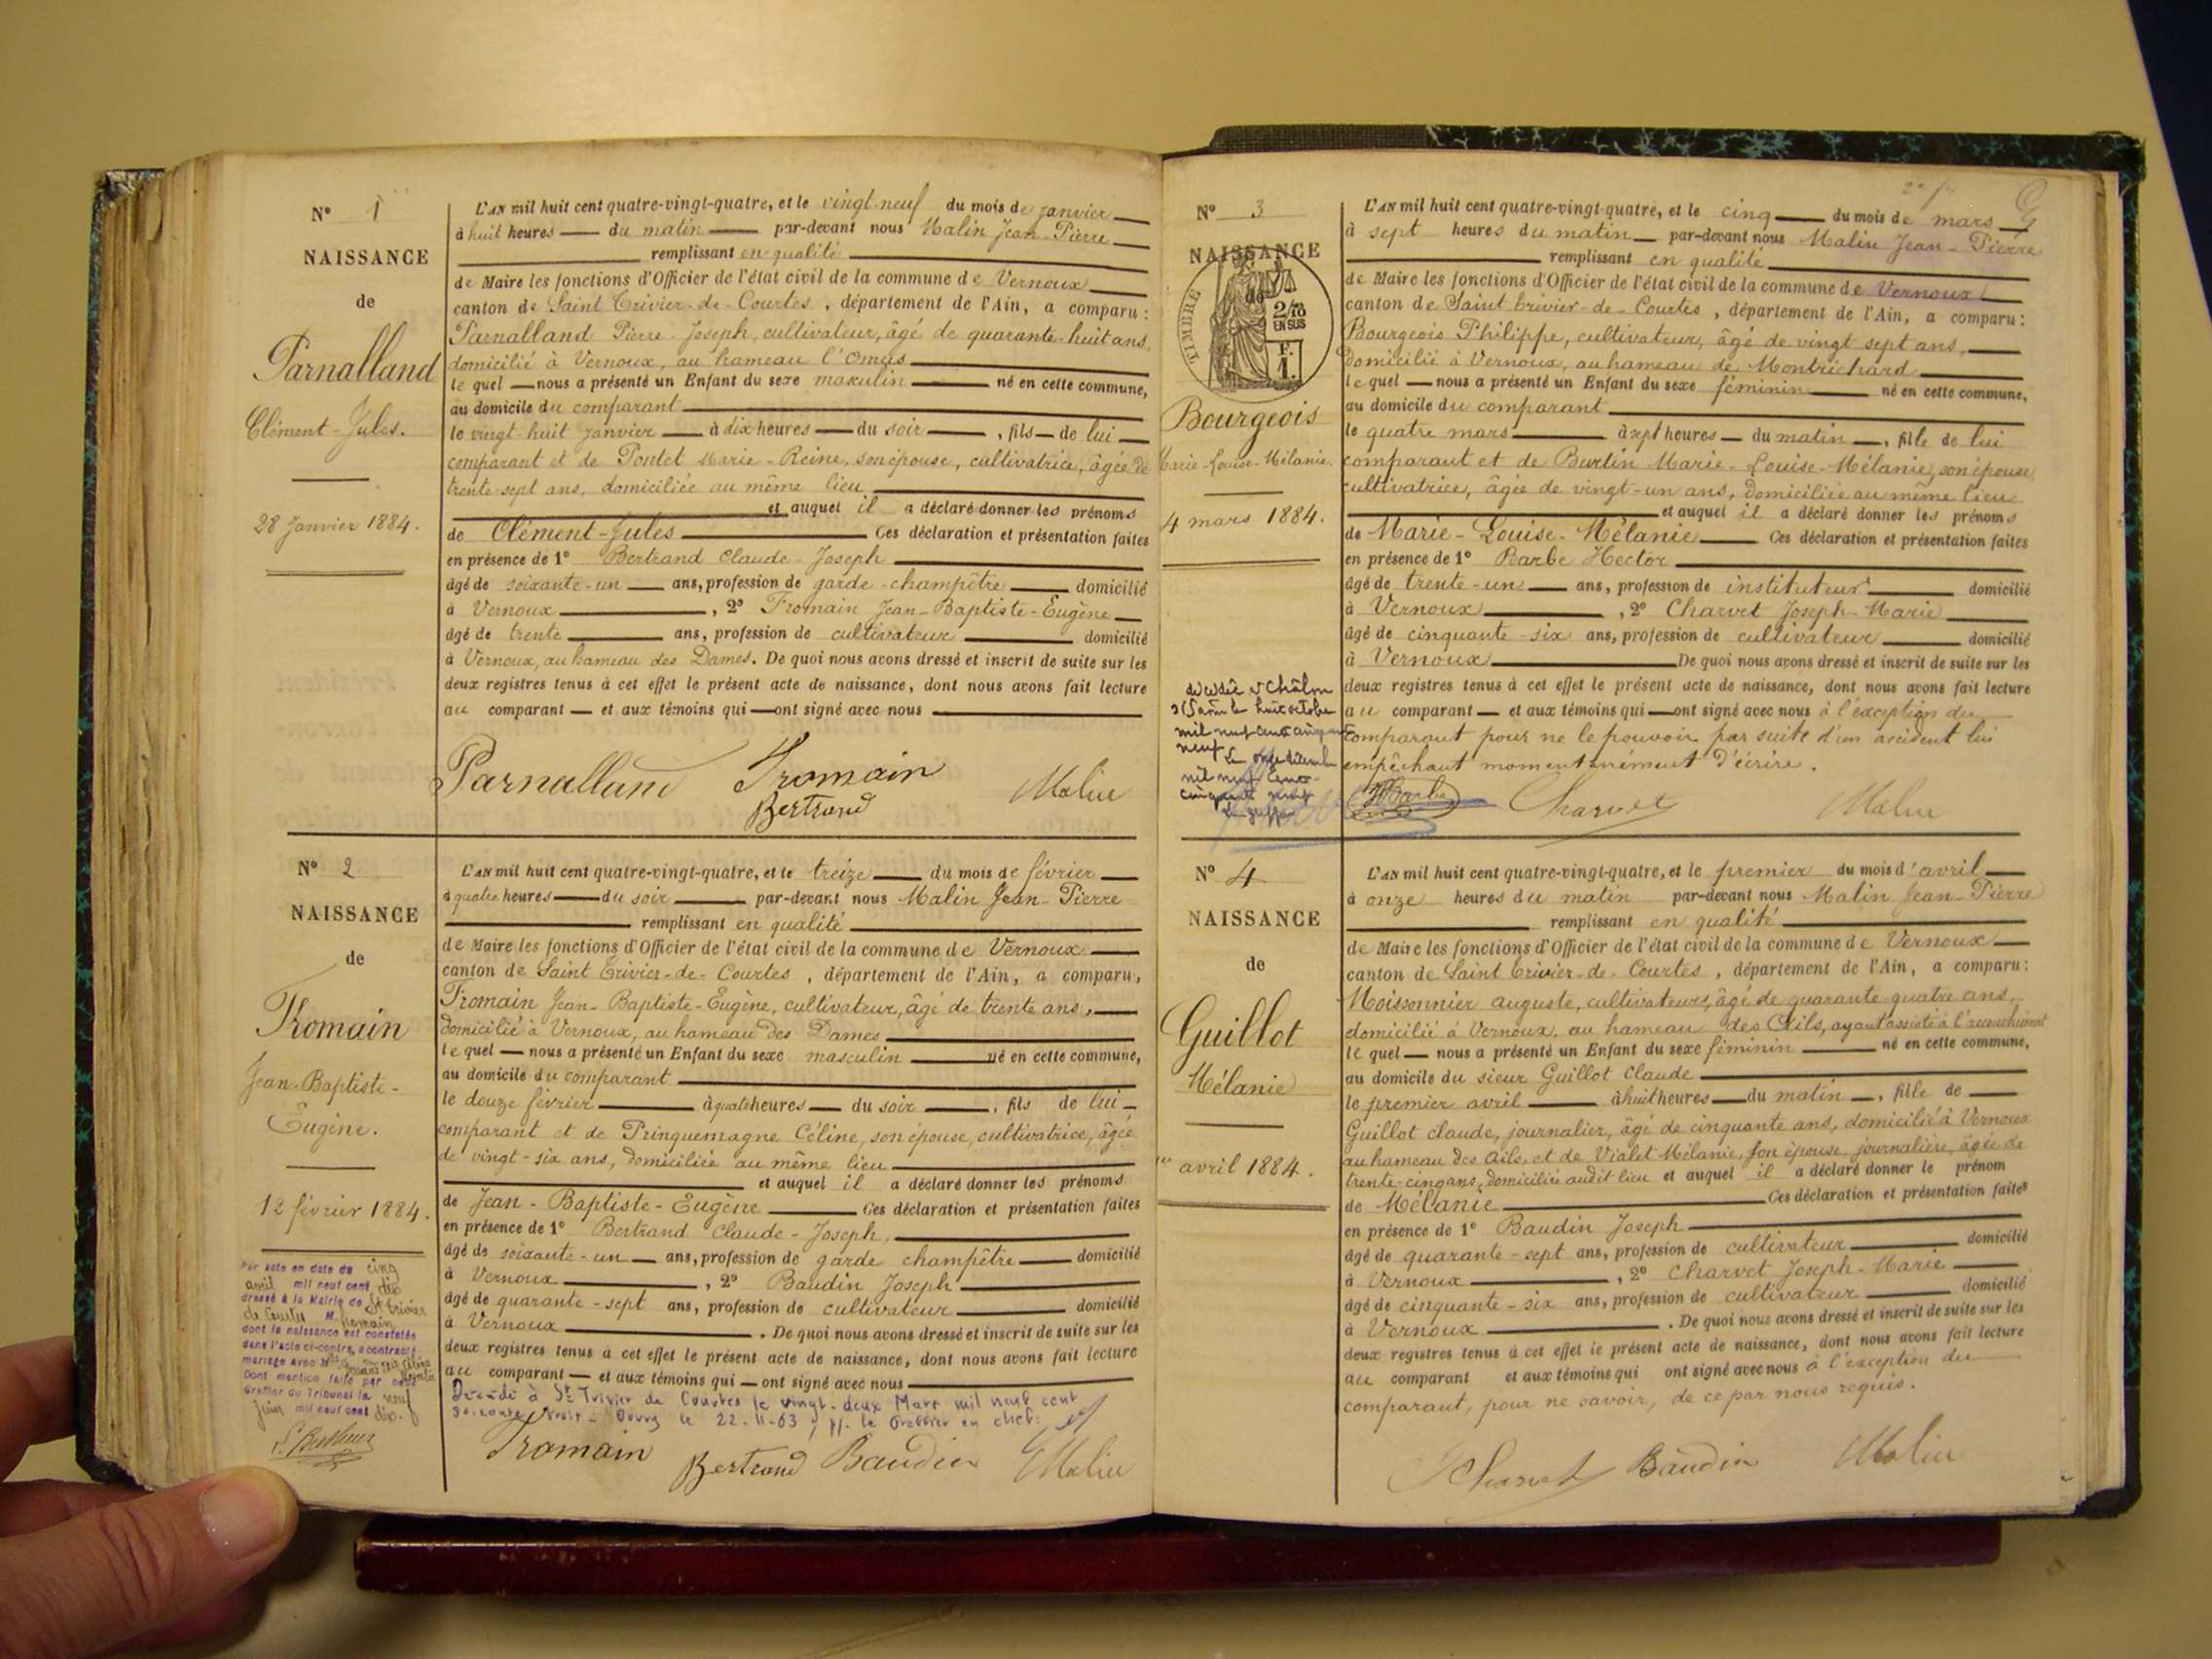 N° 1
NAISSANCE
de
Parnalland
Clément-Jules.
28 Janvier 1884.
L'AN mil huit cent quatre-vingt-quatre, et le vingt-neuf du mois de janvier
à huit heures du matin par-devant nous Malin Jean-Pierre
remplissant en qualité
de Maire les fonctions d'Officier de l'état civil de la commune de Vernoux
canton de Saint Trivier-de-Courtes, département de l'Ain, a comparu:
Parnalland Pierre-Joseph, cultivateur, âgé de quarante-huit ans,
domicilié à Vernoux, au hameau l'Omus
le quel nous a présenté un Enfant du sexe masculin né en cette commune,
au domicile du comparant
le vingt-huit janvier à dix heures du soir, fils de lui
comparant et de Pontet Marie-Reine, son épouse, cultivatrice, âgée de
trente-sept ans, domiciliée au même lieu
et auquel il a déclaré donner les prénoms
de Clément-Jules Ces déclaration et présentation faites
en présence de 1° Bertrand Claude-Joseph
âgé de soixante-un ans, profession de garde-champêtre domicilié
à Vernoux, 2° Fromain Jean-Baptiste-Eugène
âgé de trente ans, profession de cultivateur domicilié
à Vernoux, au hameau des Dames. De quoi nous avons dressé et inscrit de suite sur les
deux registres tenus à cet effet le présent acte de naissance, dont nous avons fait lecture
au comparant et aux témoins qui ont signé avec nous
Parnalland Fromain Malin
Bertrand
N° 2
NAISSANCE
de
Fromain
Jean-Baptiste-
Eugène.
12 février 1884.
Par acte en date du cinq
avril mil neuf cent dix
dressé à la Mairie de St Trivier
de Courtes M. Fromain
dont la naissance est constatée
dans l'acte ci-contre, a contracté
mariage avec
Dont mention faite par nous
Greffier du Tribunal le neuf
juin mil neuf cent dix.
L'AN mil huit cent quatre-vingt-quatre, et le treize du mois de février
à quatre heures du soir par-devant nous Malin Jean-Pierre
remplissant en qualité
de Maire les fonctions d'Officier de l'état civil de la commune de Vernoux
canton de Saint Trivier-de-Courtes, département de l'Ain, a comparu,
Fromain Jean-Baptiste-Eugène, cultivateur, âgé de trente ans,
domicilié à Vernoux, au hameau des Dames
le quel nous a présenté un Enfant du sexe masculin né en cette commune,
au domicile du comparant
le douze février à quatre heures du soir, fils de lui
comparant et de Pringuemagne Céline, son épouse, cultivatrice, âgée
de vingt-six ans, domiciliée au même lieu
et auquel il a déclaré donner les prénoms
de Jean-Baptiste-Eugène Ces déclaration et présentation faites
en présence de 1° Bertrand Claude-Joseph,
âgé de soixante-un ans, profession de garde champêtre domicilié
à Vernoux, 2° Baudin Joseph
âgé de quarante-sept ans, profession de cultivateur domicilié
à Vernoux. De quoi nous avons dressé et inscrit de suite sur les
deux registres tenus à cet effet le présent acte de naissance, dont nous avons fait lecture
au comparant et aux témoins qui ont signé avec nous
Décédé à St Trivier de Courtes le vingt-deux Mars mil neuf cent
soixante trois - Bourg le 22-11-63 p. le Greffier en chef:
Fromain Bertrand Baudin Malin
N° 3
NAISSANCE
de
TIMBRE
2/10
EN SUS
F.
1.
Bourgeois
Marie-Louise-Mélanie
4 mars 1884.
décédée à Châlon
s/Saône le huit octobre
mil neuf cent cinquante
neuf
Le onze décembre
mil neuf cent
cinquante neuf
Le greffier
2e f
L'AN mil huit cent quatre-vingt-quatre, et le cinq du mois de mars
à sept heures du matin par-devant nous Malin Jean-Pierre
remplissant en qualité
de Maire les fonctions d'Officier de l'état civil de la commune de Vernoux
canton de Saint Trivier-de-Courtes, département de l'Ain, a comparu:
Bourgeois Philippe, cultivateur, âgé de vingt sept ans,
domicilié à Vernoux, au hameau de Montrichard
le quel nous a présenté un Enfant du sexe féminin né en cette commune,
au domicile du comparant
le quatre mars à sept heures du matin, fille de lui
comparant et de Burtin Marie-Louise-Mélanie, son épouse
cultivatrice, âgée de vingt-un ans, domiciliée au même lieu
et auquel il a déclaré donner les prénoms
de Marie-Louise-Mélanie Ces déclaration et présentation faites
en présence de 1° Barbe Hector
âgé de trente-un ans, profession de instituteur domicilié
à Vernoux, 2° Charvet Joseph-Marie
âgé de cinquante-six ans, profession de cultivateur domicilié
à Vernoux De quoi nous avons dressé et inscrit de suite sur les
deux registres tenus à cet effet le présent acte de naissance, dont nous avons fait lecture
au comparant et aux témoins qui ont signé avec nous à l'exception du
comparant pour ne le pouvoir par suite d'un accident lui
empêchant momentanément d'écrire.
HBarbe Charvet Malin
N° 4
NAISSANCE
de
Guillot
Mélanie
1er avril 1884.
L'AN mil huit cent quatre-vingt-quatre, et le premier du mois d'avril
à onze heures du matin par-devant nous Malin Jean-Pierre
remplissant en qualité
de Maire les fonctions d'Officier de l'état civil de la commune de Vernoux
canton de Saint Trivier-de-Courtes, département de l'Ain, a comparu:
Moissonnier Auguste, cultivateur, âgé de quarante-quatre ans,
domicilié à Vernoux, au hameau des Ails, ayant assisté à l'accouchement
le quel nous a présenté un Enfant du sexe féminin né en cette commune,
au domicile du sieur Guillot Claude
le premier avril à huit heures du matin, fille de
Guillot Claude, journalier, âgé de cinquante ans, domicilié à Vernoux
au hameau des Ails, et de Vialet Mélanie, son épouse, journalière, âgée de
trente-cinq ans, domiciliée audit lieu et auquel il a déclaré donner le prénom
de Mélanie Ces déclaration et présentation faites
en présence de 1° Baudin Joseph
âgé de quarante-sept ans, profession de cultivateur domicilié
à Vernoux, 2° Charvet Joseph-Marie
âgé de cinquante-six ans, profession de cultivateur domicilié
à Vernoux. De quoi nous avons dressé et inscrit de suite sur les
deux registres tenus à cet effet le présent acte de naissance, dont nous avons fait lecture
au comparant et aux témoins qui ont signé avec nous à l'exception du
comparant, pour ne savoir, de ce par nous requis.
Charvet Baudin Malin